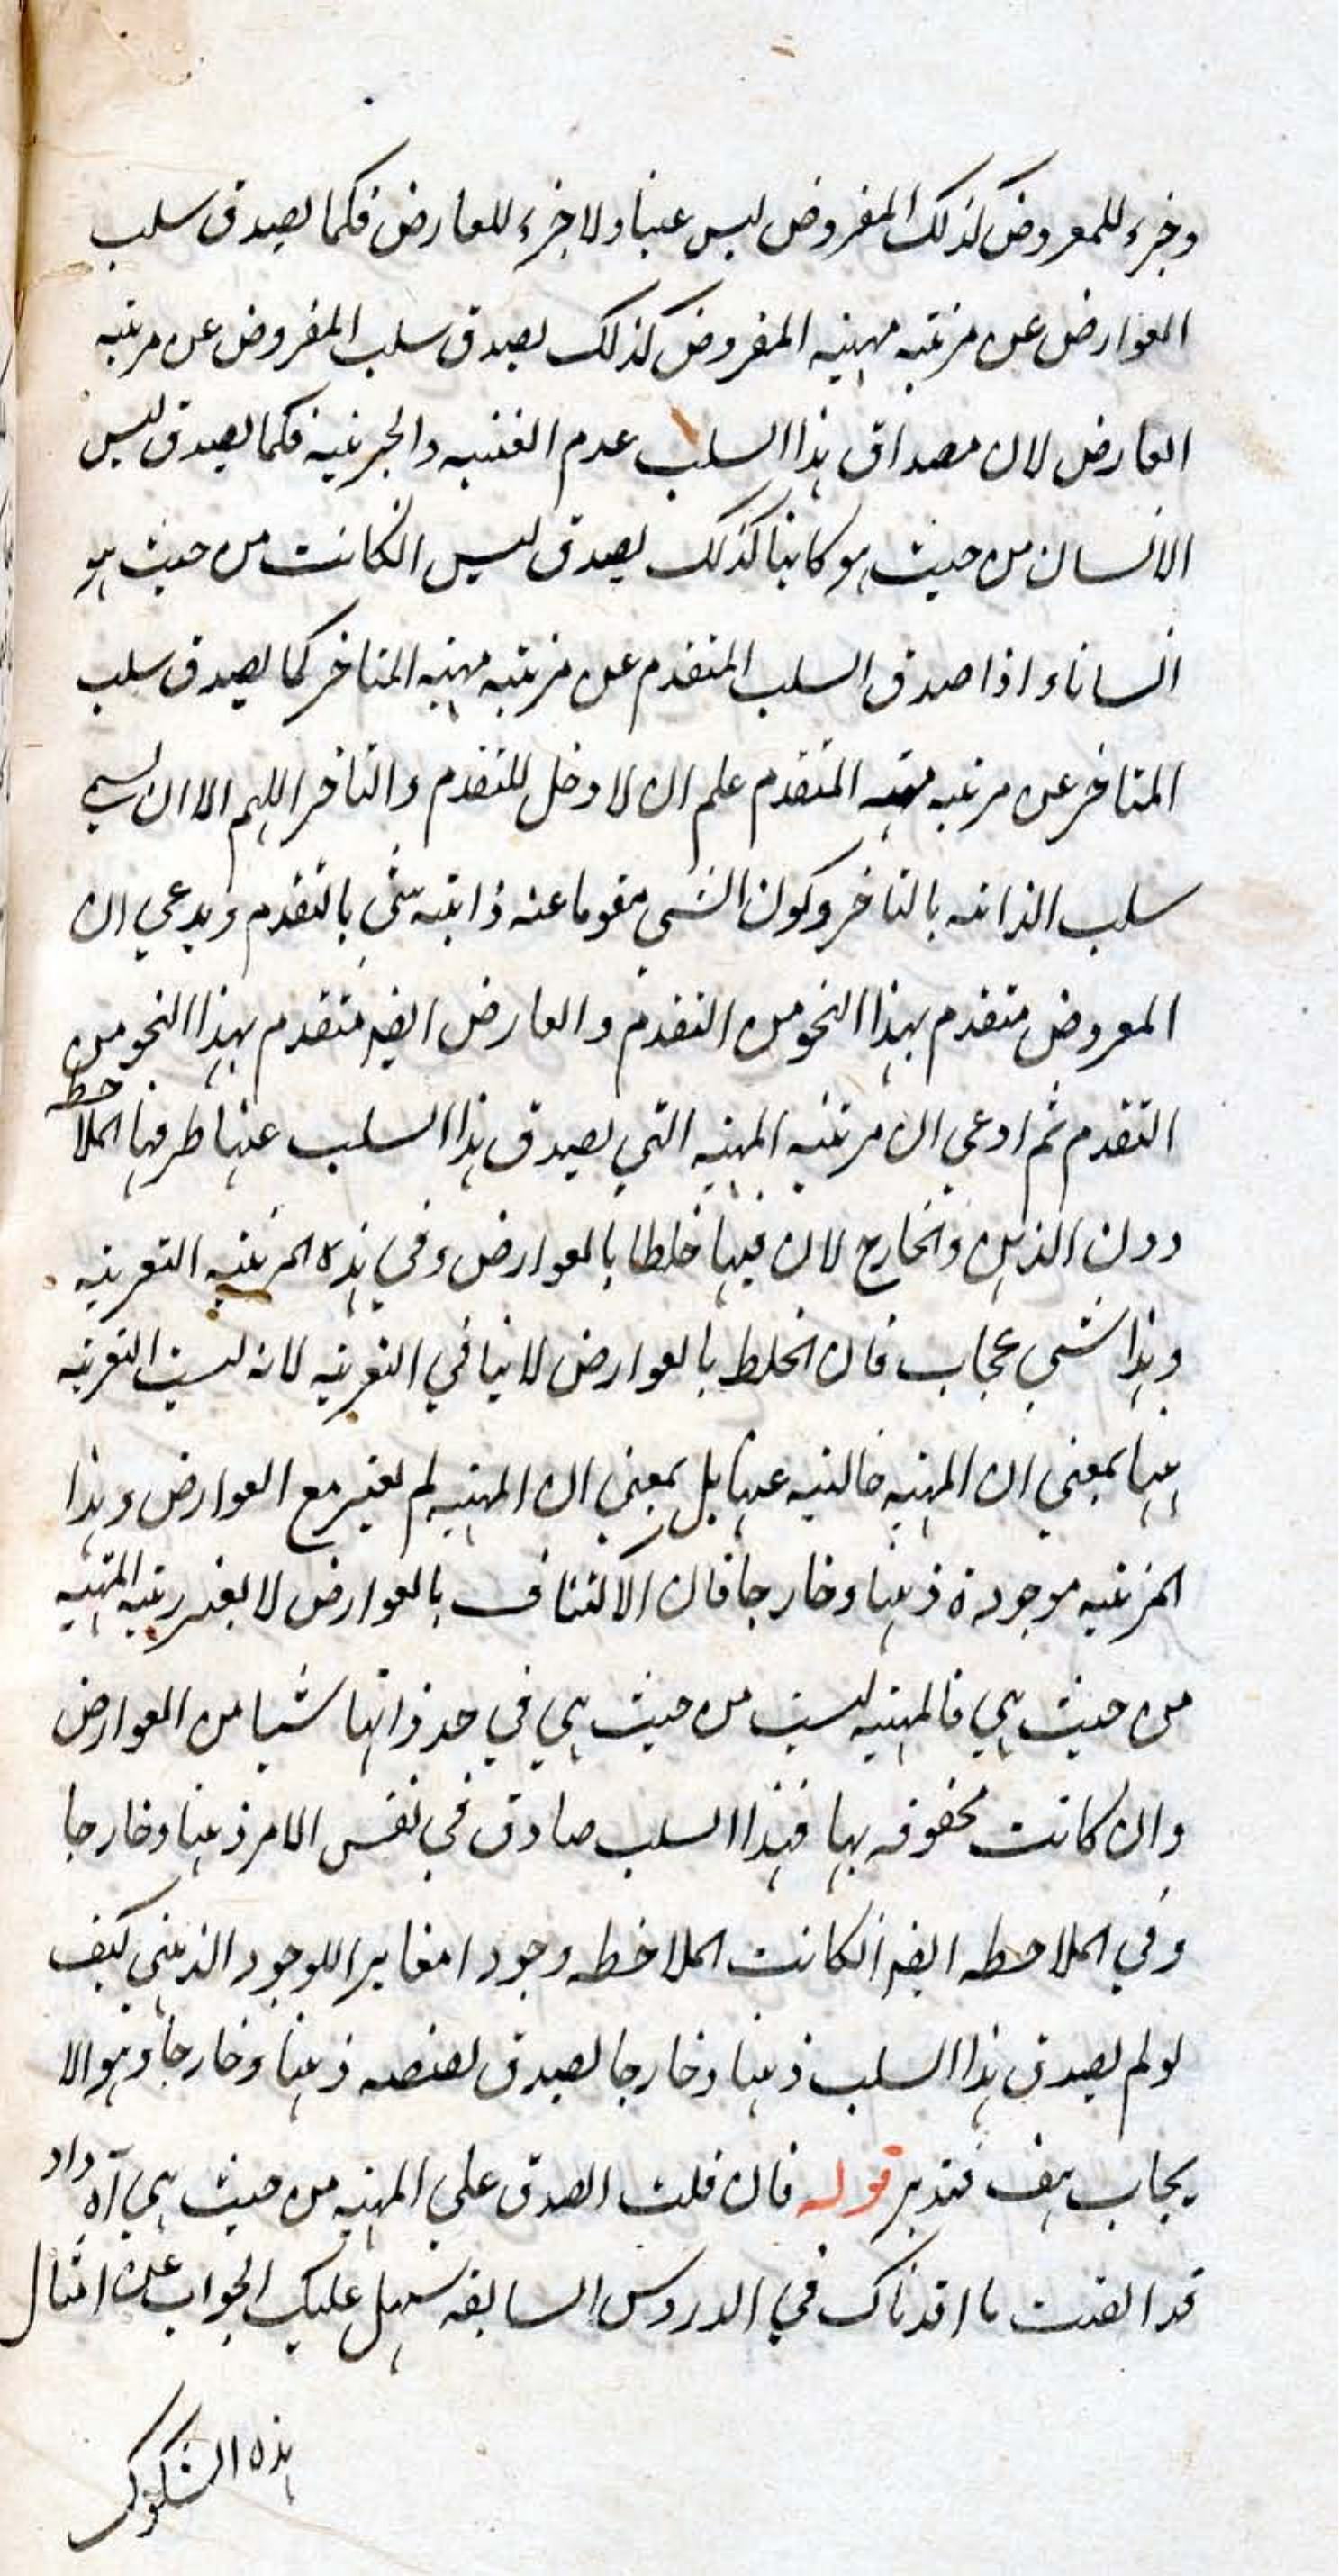 وجزء للمعروض كذلك المفروض ليس عينا ولا جزء للعارض فكما يصدق سلب
العوارض عن مرتبه مهية المفروض كذلك يصدق سلب المفروض عن مرتبه
العارض لان مصداق هذا السلب عدم العينيه والجزئية فكما يصدق ليس
الانسان من حيث هو كاتبا كذلك يصدق ليس الكاتب من حيث هو
انسانا واذا صدق السلب المتقدم عن مرتبه مهية المتاخر كما يصدق سلب
المتاخر عن مرتبه مهية المتقدم علم ان لا دخل للتقدم والتاخر اللهم الا ان يسمي
سلب الذاتيه بالتاخر وكون الشي مقوما عنه ذاتيه شي بالتقدم ويدعي ان
المعروض متقدم بهذا النحو من التقدم والعارض ايضا متقدم بهذا النحو من
التقدم ثم ادعي ان مرتبه المهية التي يصدق هذا السلب عنها ظرفها الملاحظه
دون الذهن والخارج لان فيها خلطا بالعوارض وفي هذه المرتبه التعريه
وهذا شي عجاب فان الخلط بالعوارض لا ينافي التعريه لانه ليست التعريه
عنها بمعني ان المهية خالية عنها بل بمعني ان المهية لم تعتبر مع العوارض وهذا
المرتبه موجودة ذهنا وخارجا فان الاكتناف بالعوارض لا يغير رتبه المهية
من حيث هي فالمهية ليست من حيث هي في حد ذاتها شيا من العوارض
وان كانت محفوفه بها فهذا السلب صادق في نفس الامر ذهنا وخارجا
وفي الملاحظه ايضا انكانت الملاحظه وجودا مغايرا للوجود الذهني كيف
لو لم يصدق هذا السلب ذهنا وخارجا لصدق نقيضه ذهنا وخارجا وهو الا
يجاب هف فتدبر قوله فان قلت الصدق علي المهية من حيث هي آه واذ
قد اتقنت ما افدناك في الدروس السابقه سهل عليك الجواب عن امثال
هذه الشكوك